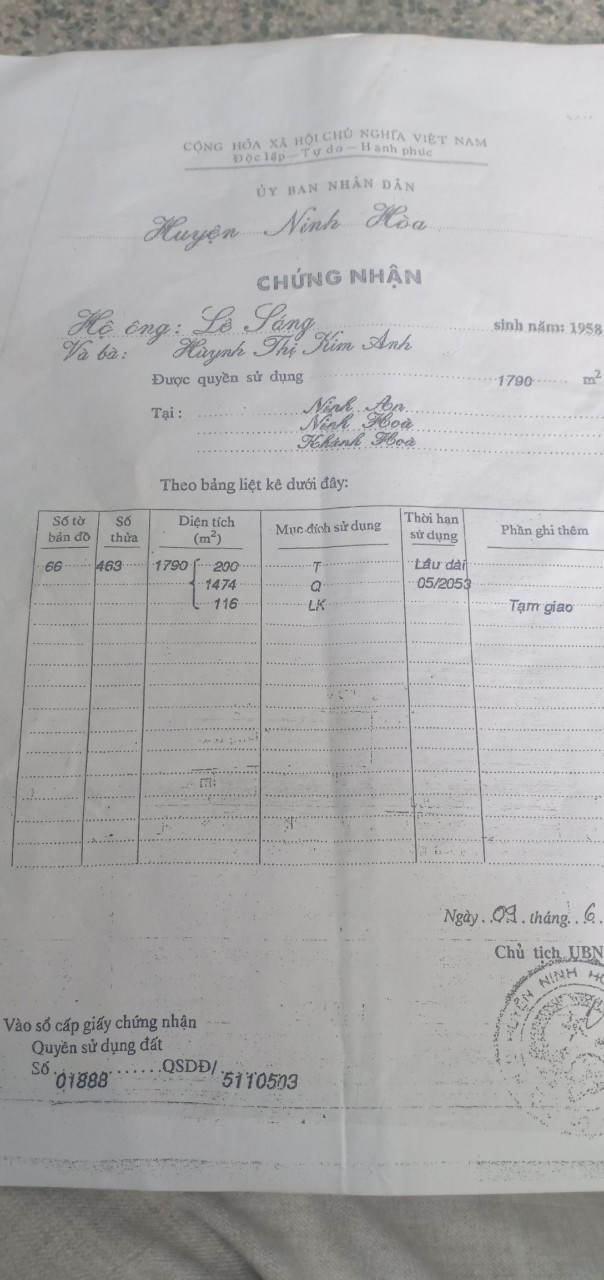 CỘNG HÒA XÃ HỘI CHỦ NGHĨA VIỆT NAM
Độc lập — Tự do — Hạnh phúc
ỦY BAN NHÂN DÂN
Huyện Ninh Hòa
CHỨNG NHẬN
Hộ ông: Lê Sáng sinh năm: 1958
Và bà: Huỳnh Thị Kim Anh
Được quyền sử dụng 1790 m²
Tại: Ninh An
Ninh Hoà
Khánh Hoà
Theo bảng liệt kê dưới đây:
Số tờ bản đồ Số thửa Diện tích (m²) Mục đích sử dụng Thời hạn sử dụng Phần ghi thêm
66 463 1790 { 200 T Lâu dài
1474 Q 05/2053
116 LK Tạm giao
Ngày 09 tháng 6
Chủ tịch UBN
HUYỆN NINH HÒ
Vào sổ cấp giấy chứng nhận
Quyền sử dụng đất
Số 01888 QSDĐ/ 5110503